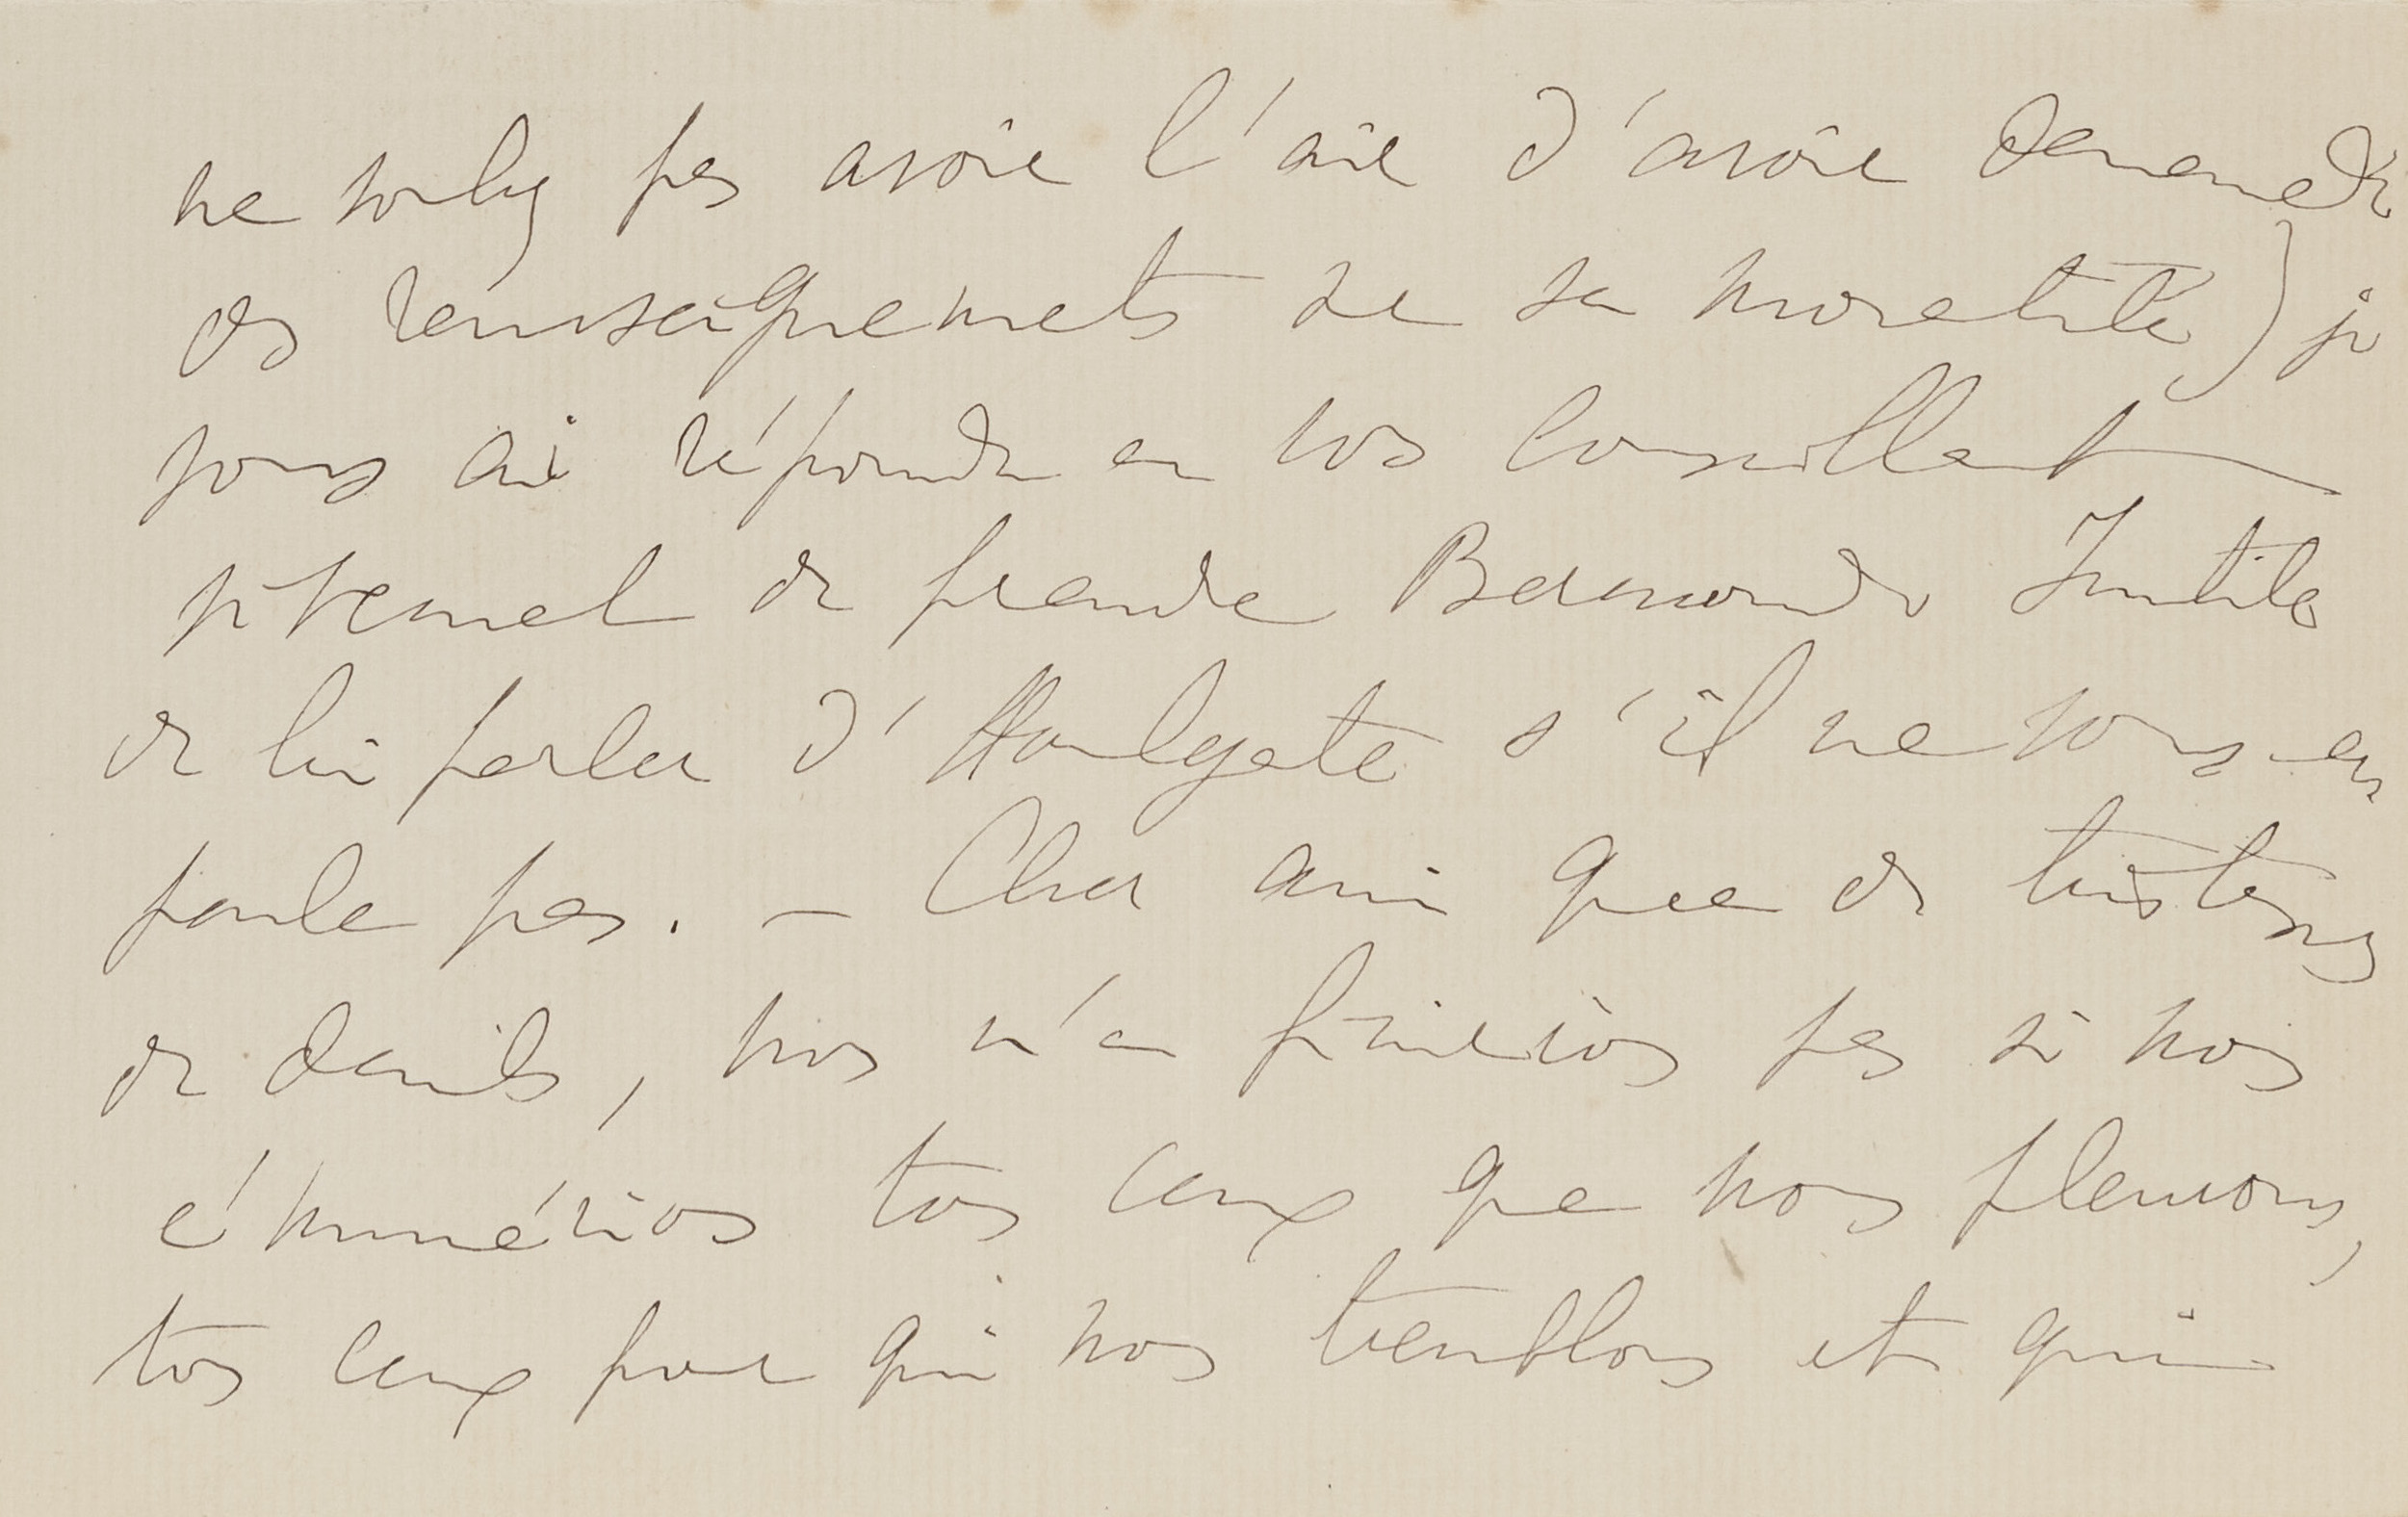 ne voulez pas avoir l'air d'avoir demandé
des renseignements sur sa moralité) je
vous ai répondu en vous conseillant
de prendre Bermondo Inutile
de lui parler d'Houlgate s'il ne vous en
parle pas. — Cher ami que de tristesses
de deuils, nous n'en finirions pas si nous
énumérions tous ceux que nous pleurons,
tous ceux pour qui nous tremblons et qui